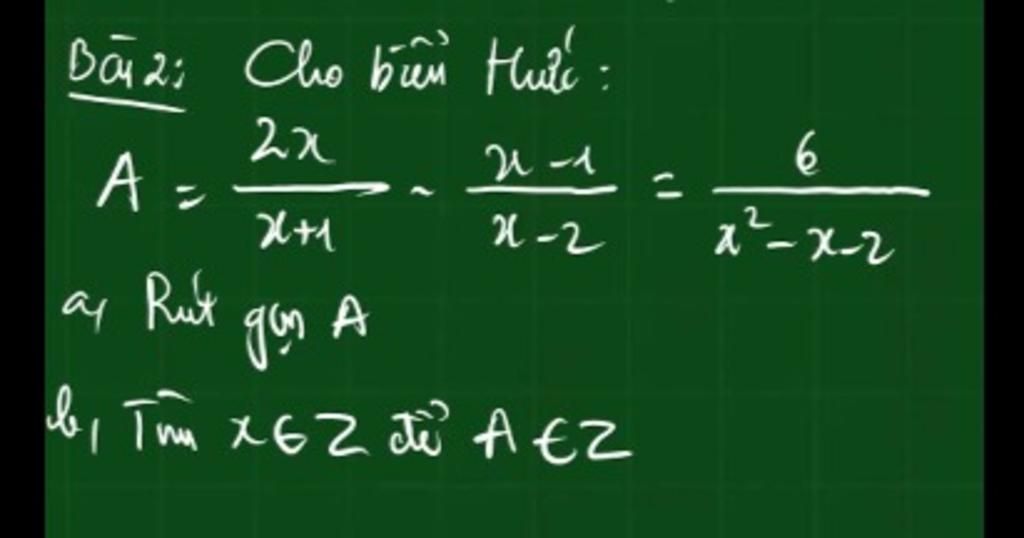 Bài 2: Cho biểu thức:
A = \frac{2x}{x+1} - \frac{x-1}{x-2} = \frac{6}{x^2-x-2}
a, Rút gọn A
b, Tìm x ∈ Z để A ∈ Z